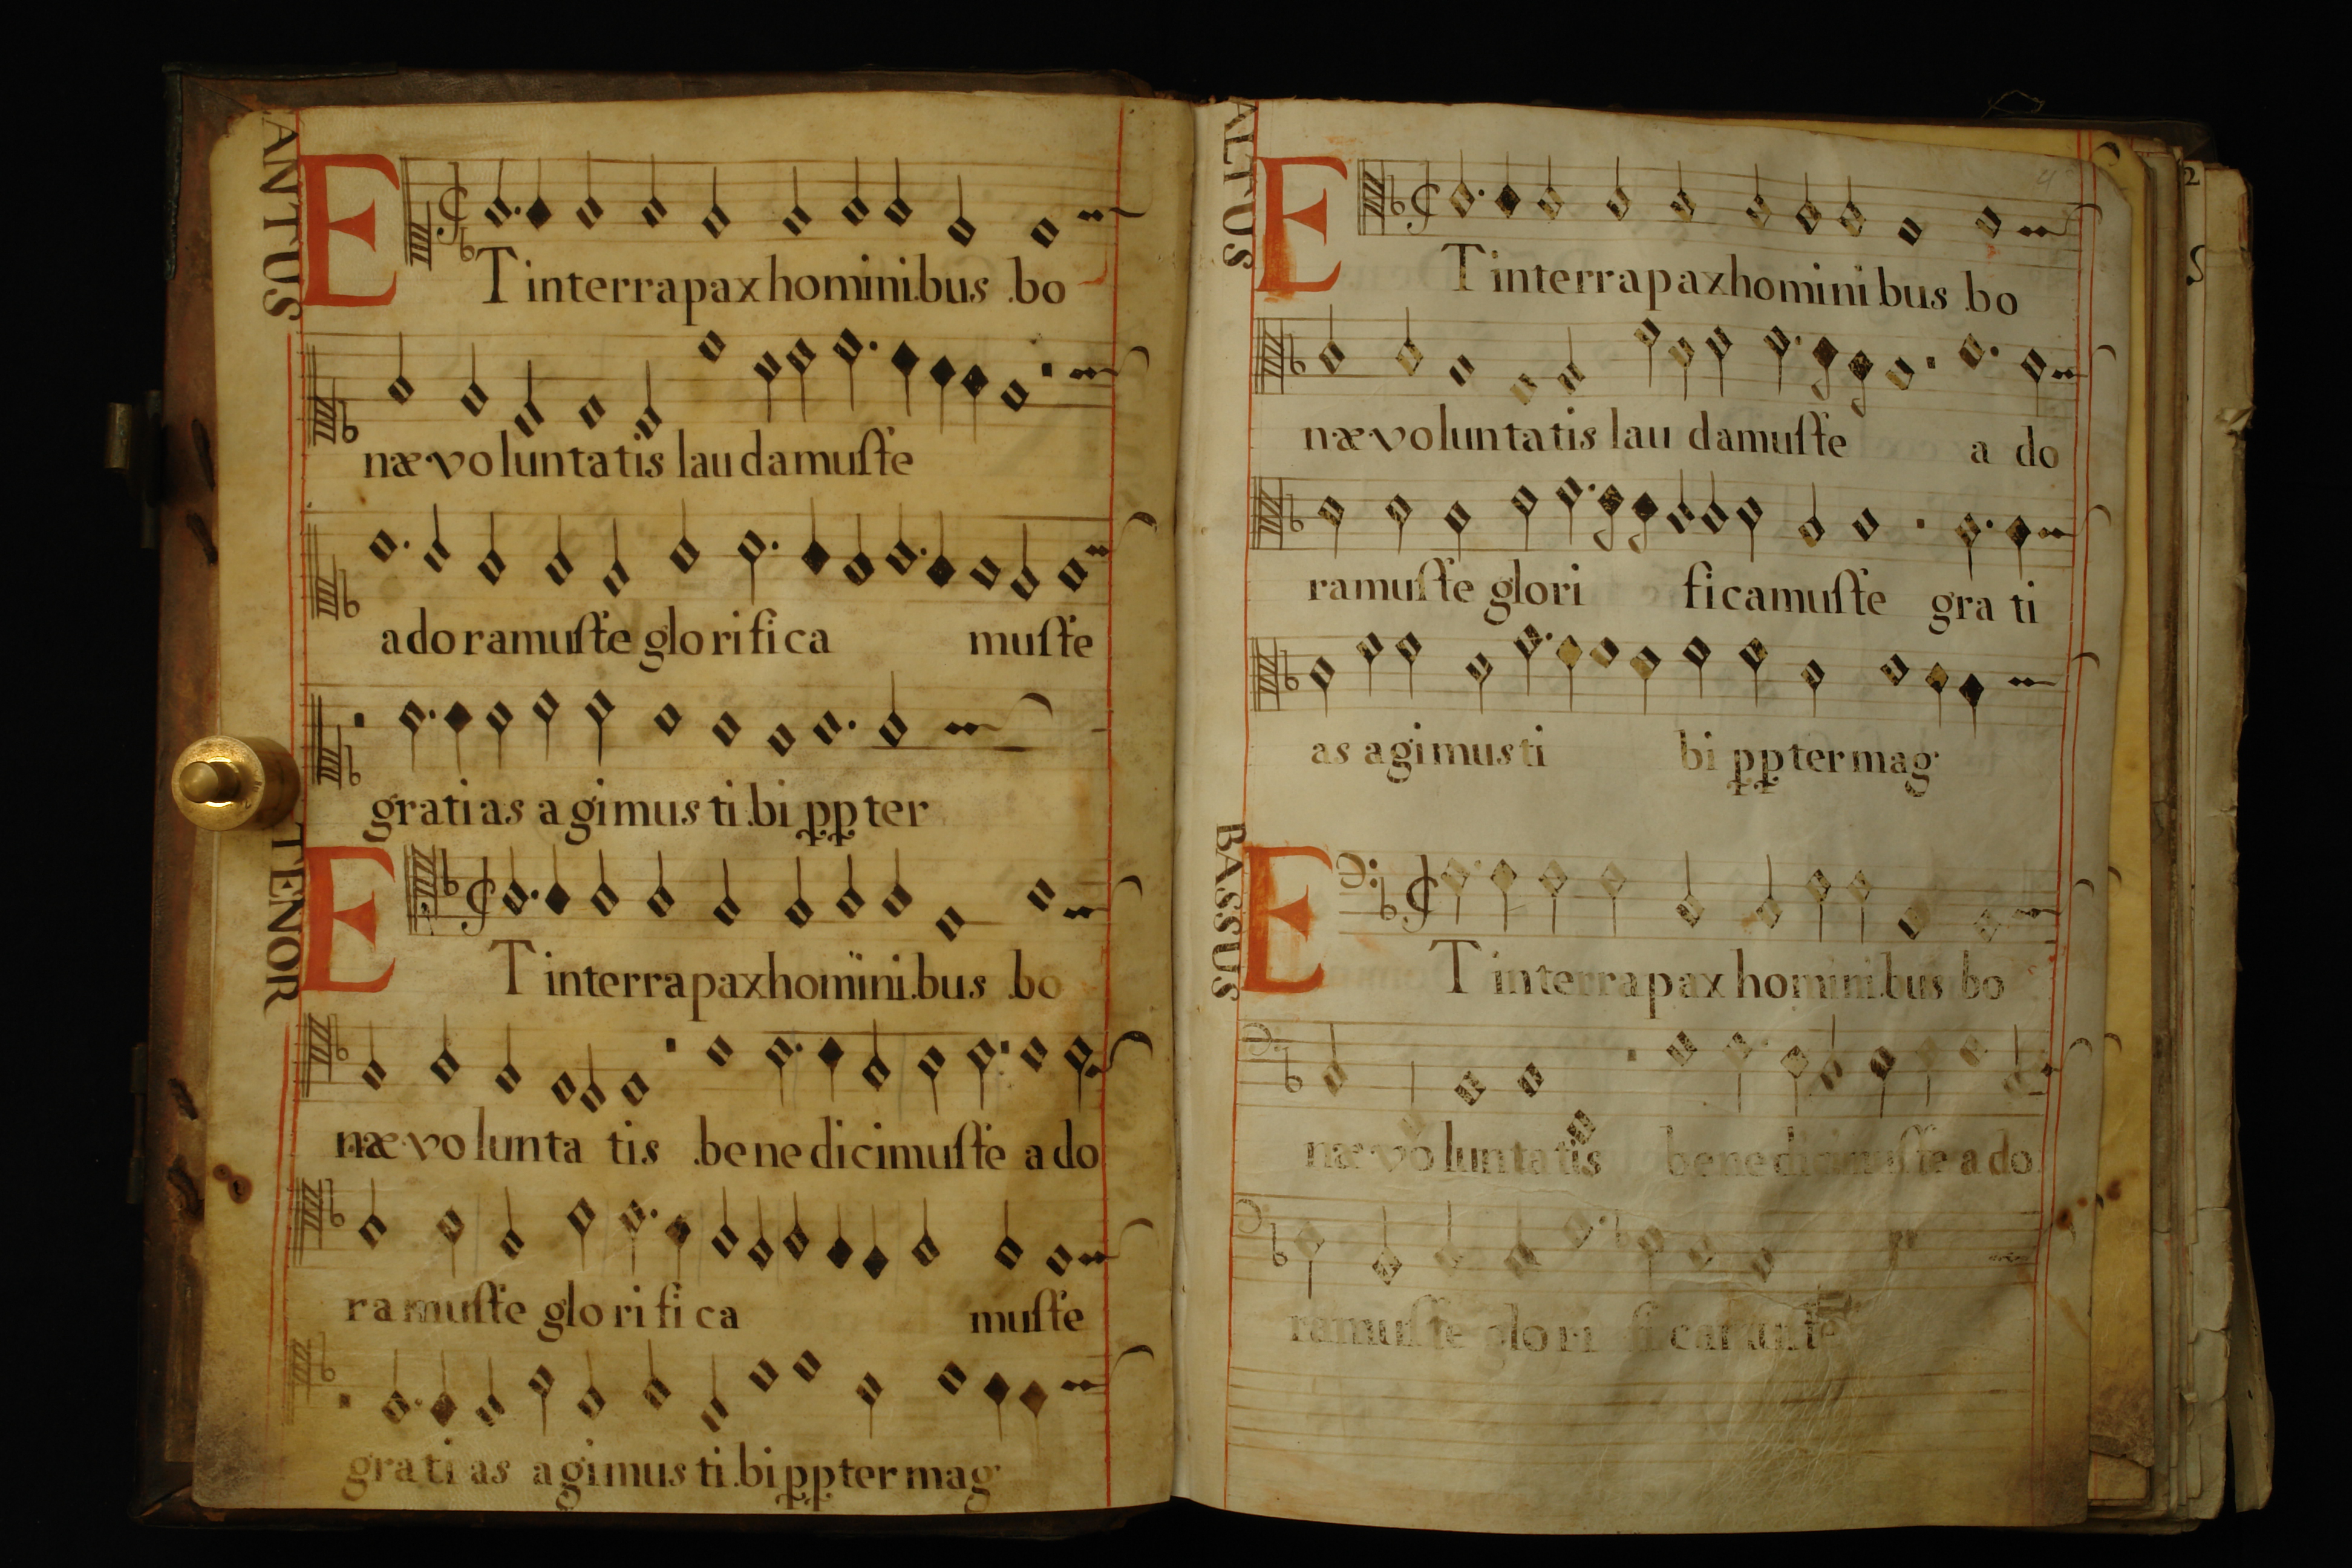 CANTUS
ET in terra pax hominibus bo
næ voluntatis laudamuſte
adoramuſte glorifica muſte
gratias agimus tibi ppter
TENOR
ET in terra pax hominibus bo
næ voluntatis benedicimuſte ado
ramuſte glorifica muſte
gratias agimus tibi ppter mag
ALTUS
ET in terra pax hominibus bo
næ voluntatis laudamuſte a do
ramuſte glori ficamuſte gra ti
as agimus ti bi ppter mag
BASSUS
ET in terra pax hominibus bo
næ voluntatis benedicimuſte a do
ramuſte glori ficamuſte
2